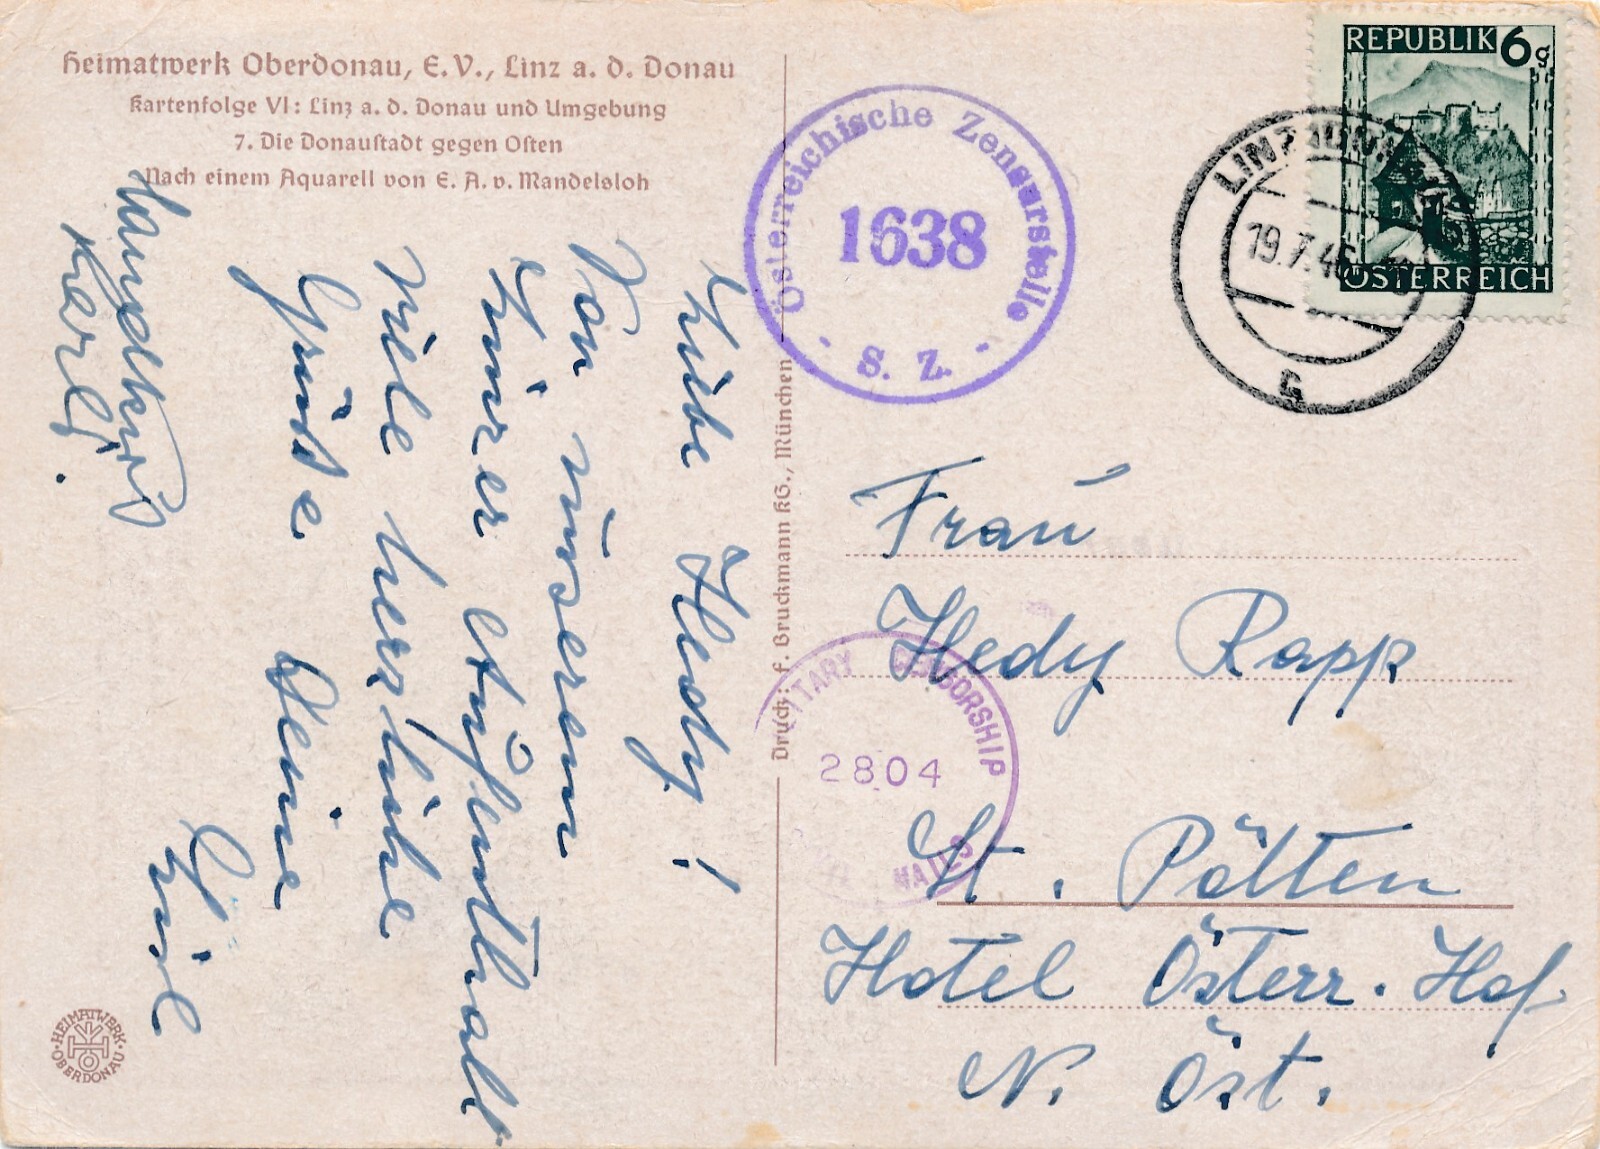 Heimatwerk Oberdonau, E.V., Linz a. d. Donau
Kartenfolge VI: Linz a. d. Donau und Umgebung
7. Die Donaustadt gegen Osten
Nach einem Aquarell von E. A. v. Mandelsloh
Liebe Hedy!
Von unserem
Linzer Aufenthalt
viele herzliche
Grüße Deine
Handkuß
Karl.
Druck: F. Bruckmann KG., München
HEIMATWERK
OBERDONAU
Österreichische Zensurstelle
1638
S. Z.
REPUBLIK 6g
ÖSTERREICH
LINZ
19.7.46
MILITARY CENSORSHIP
2804
MAILS
Frau
Hedy Rapp
St. Pölten
Hotel Österr. Hof
N. Öst.